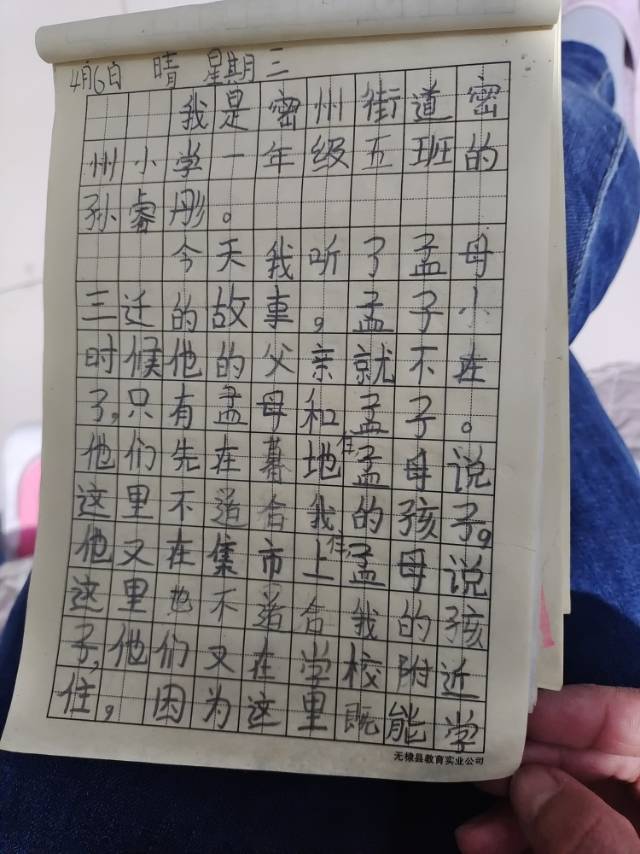 4月6日 晴 星期三
我是密州街道密
州小学一年级五班的
孙睿彤。
今天我听了孟母
三迁的故事，孟子小
时候他的父亲就不在
了，只有孟母和孟子。
他们先在墓地住孟母说
这里不适合我的孩子。
他又在集市上住，孟母说
这里也不适合我的孩
子，他们又在学校附近
住，因为这里既能学
无棣县教育实业公司